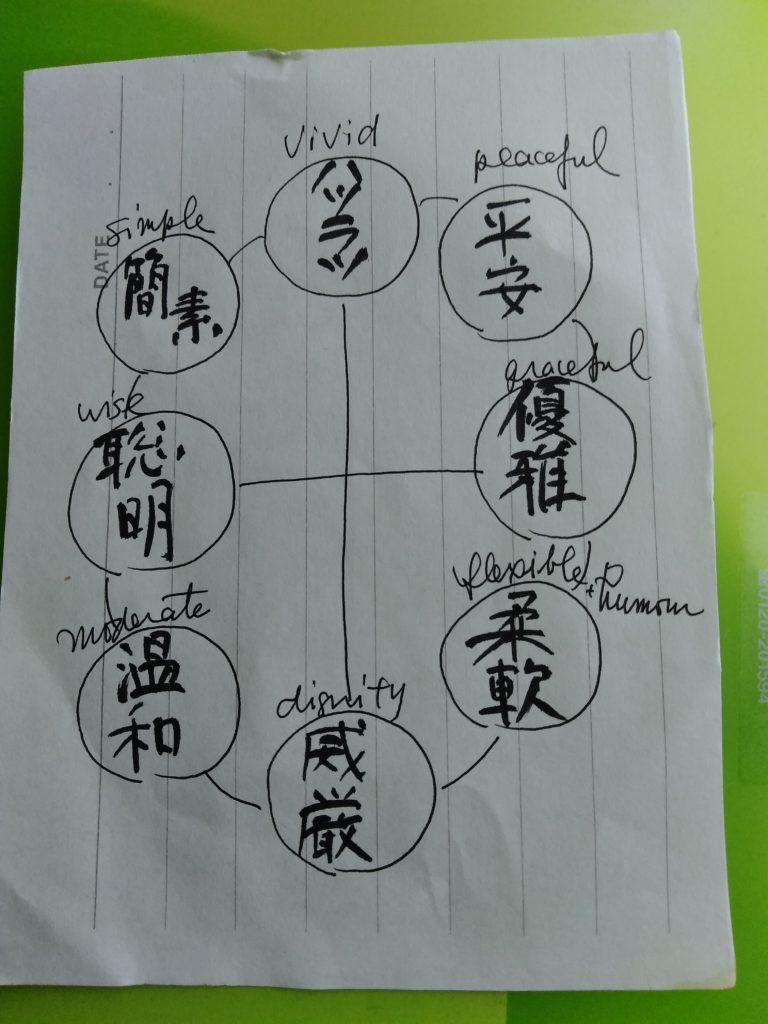 vivid
ハツラツ
peaceful
平安
simple
簡素
DATE
graceful
優雅
wise
聡明
flexible
+ humour
柔軟
moderate
温和
dignity
威厳
0120-201594